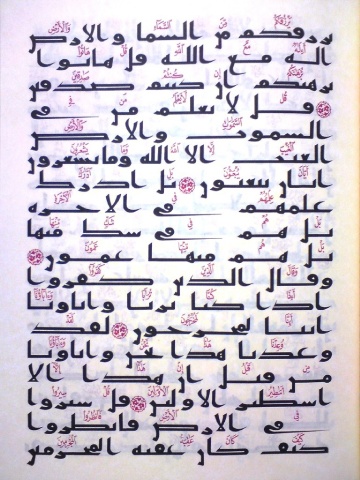 يرزقكم من السما والارض
اله مع الله قل هاتوا
برهنكم ان كنتم صدقين
قل لا يعلم من في
السموت والارض
الغيب الا الله وما يشعرون
ايان يبعثون بل ادرك
علمهم في الاخره
بل هم في شك منها
بل هم منها عمون
وقال الذين كفروا
اذا كنا تربا واباونا
اننا لمخرجون لقد
وعدنا هذا نحن واباونا
من قبل ان هذا الا
اسطير الاولين قل سيروا
في الارض فانظروا
كيف كان عقبه المجرمين